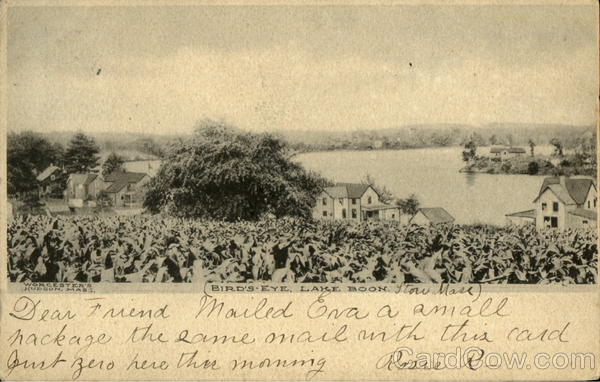 WORCESTER'S
HUDSON, MASS.
(BIRD'S-EYE, LAKE BOON. Stow Mass)
Dear Friend Mailed Eva a small
package the same mail with this card
Just zero here this morning Rosie R
CardCow.com